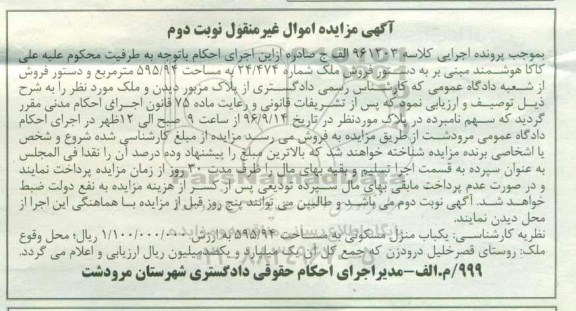 آگهی مزایده اموال غیرمنقول نوبت دوم
بموجب پرونده اجرایی کلاسه ۹۶۱۲۰۳ الف ج صادره ازاین اجرای احکام باتوجه به طرفیت محکوم علیه علی
کاکا هوشمند مبنی بر به دستور فروش ملک شماره ۲۴/۴۷۴ به مساحت ۵۹۵/۹۴ مترمربع و دستور فروش
از شعبه دادگاه عمومی که کارشناس رسمی دادگستری از پلاک مزبور دیدن و ملک مورد نظر را به شرح
ذیل توصیف و ارزیابی نمود که پس از تشریفات قانونی و رعایت ماده ۷۵ قانون اجرای احکام مدنی مقرر
گردید که سهم نامبرده در پلاک موردنظر در تاریخ ۹۶/۹/۱۴ از ساعت ۹ صبح الی ۱۲ظهر در اجرای احکام
دادگاه عمومی مرودشت از طریق مزایده به فروش می رسد مزایده از مبلغ کارشناسی شده شروع و شخص
یا اشخاصی برنده مزایده شناخته خواهند شد که بالاترین مبلغ را پیشنهاد وده درصد آن را نقدا فی المجلس
به عنوان سپرده به قسمت اجرا تسلیم و بقیه بهای مال را ظرف مدت ۳۰ روز از زمان مزایده پرداخت نمایند
و در صورت عدم پرداخت مابقی بهای مال سپرده تودیعی پس از کسر از هزینه مزایده به نفع دولت ضبط
خواهد شد. آگهی نوبت دوم می باشد و طالبین می توانند پنج روز قبل از مزایده با هماهنگی این اجرا از
محل دیدن نمایند.
نظریه کارشناسی: یکباب منزل مسکونی به مساحت ۵۹۵/۹۴ به ارزش ۱/۱۰۰/۰۰۰/۰۰۰ ریال؛ محل وقوع
ملک: روستای قصرخلیل درودزن که جمع کل آن یک میلیارد و یکصدمیلیون ریال ارزیابی و اعلام می گردد.
۹۹۹/م.الف-مدیراجرای احکام حقوقی دادگستری شهرستان مرودشت